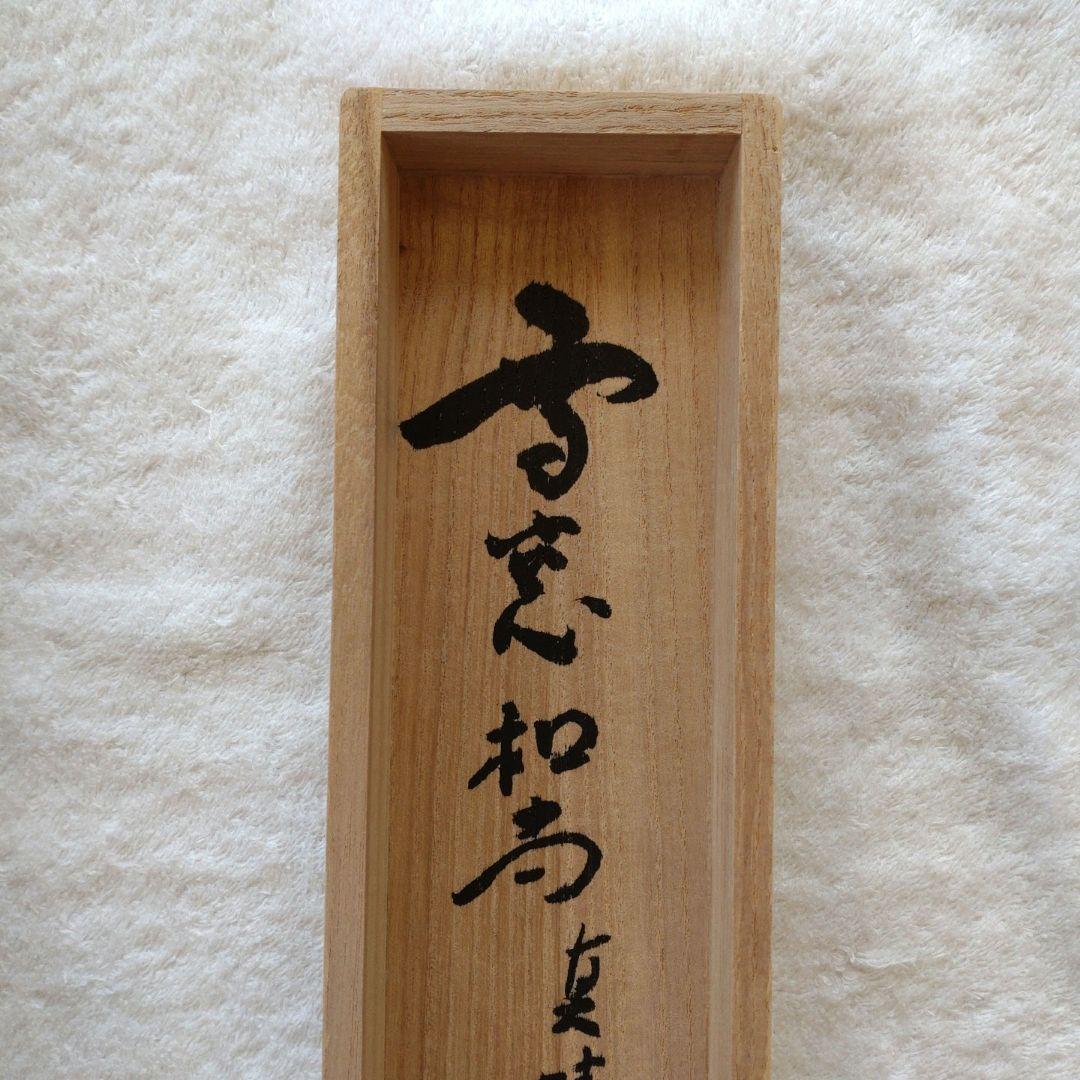 雪窓和尚
真